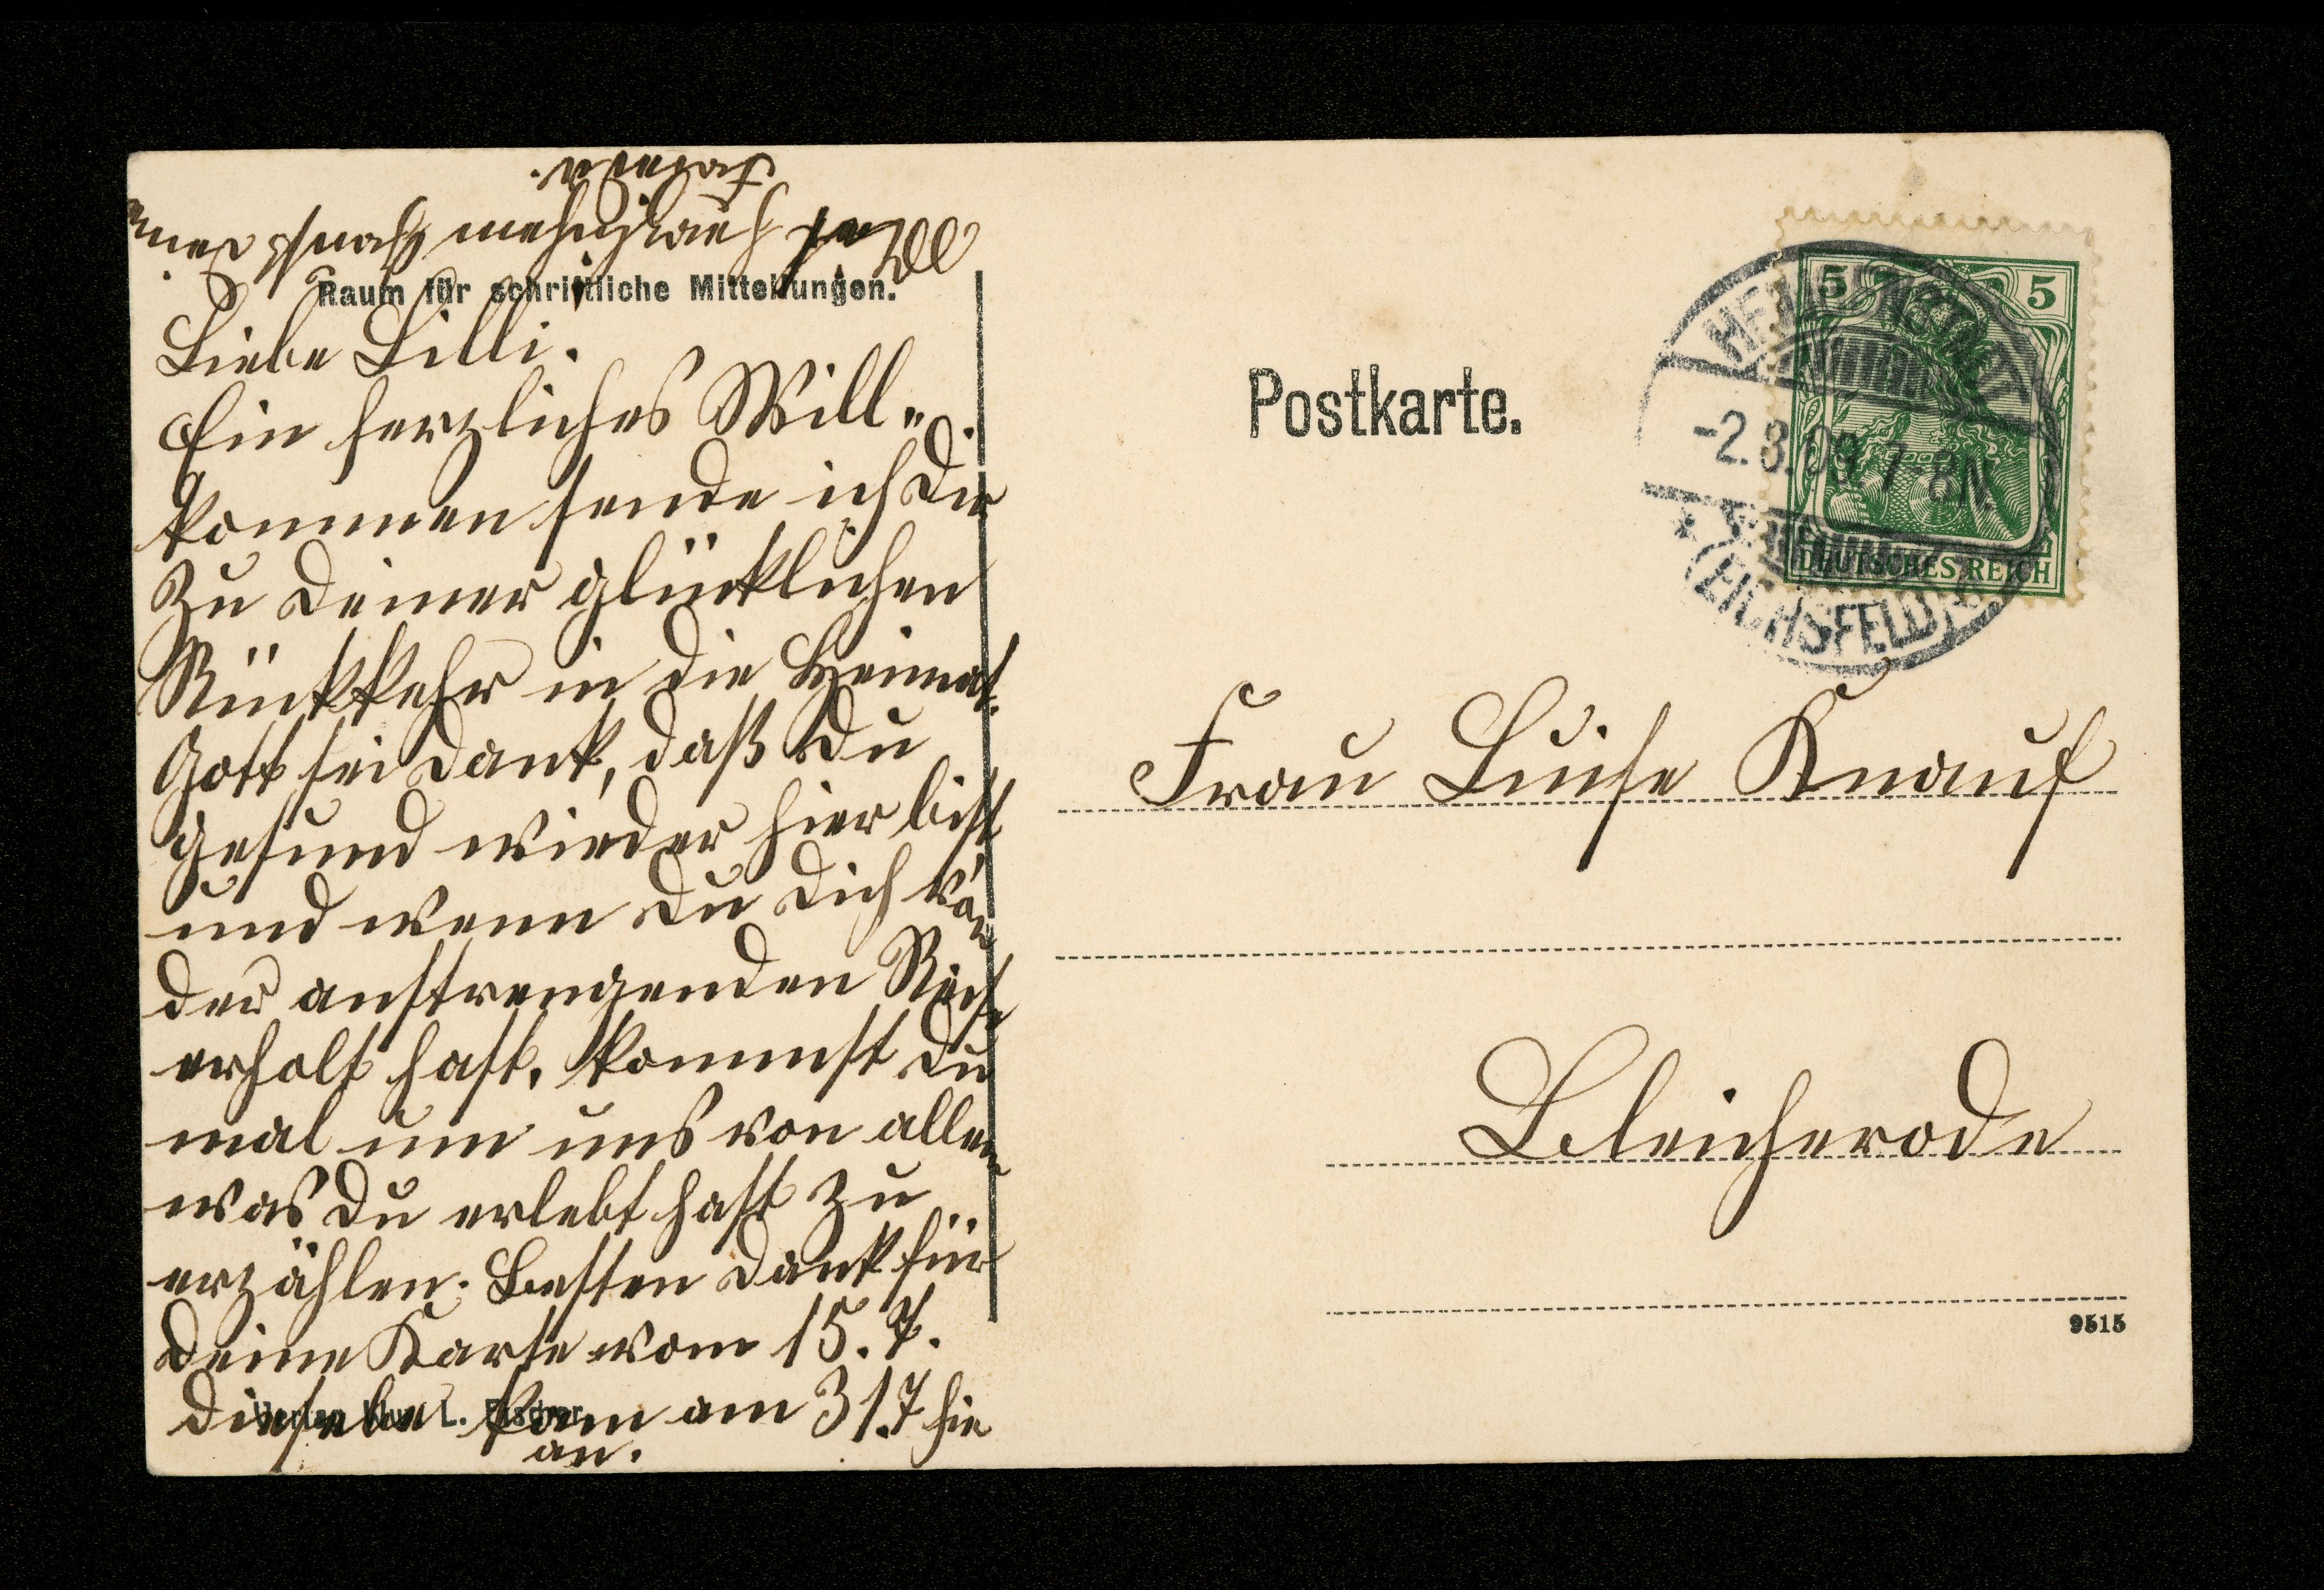 Raum für schriftliche Mitteilungen.
Liebe Lilli.
Ein herzliches Will„
kommen sende ich Dir
zu Deiner glücklichen
Rückkehr in die Heimat.
Gott sei Dank, daß Du
gesund wieder hier bist
und wenn Du Dich von
der anstrengenden Reise
erholt hast, kommst Du
mal um uns von allem
was Du erlebt hast zu
erzählen. Besten Dank für
Deine Karte vom 15.7.
Dieselbe kam am 31.7 hie
an.
Verlag L. Fischer
Postkarte.
5 5
DEUTSCHES REICH
HEILIGENSTADT
-2.8.09. 7-8N
* (EICHSFELD)
Frau Luise Knauf
Bleicherode
9515